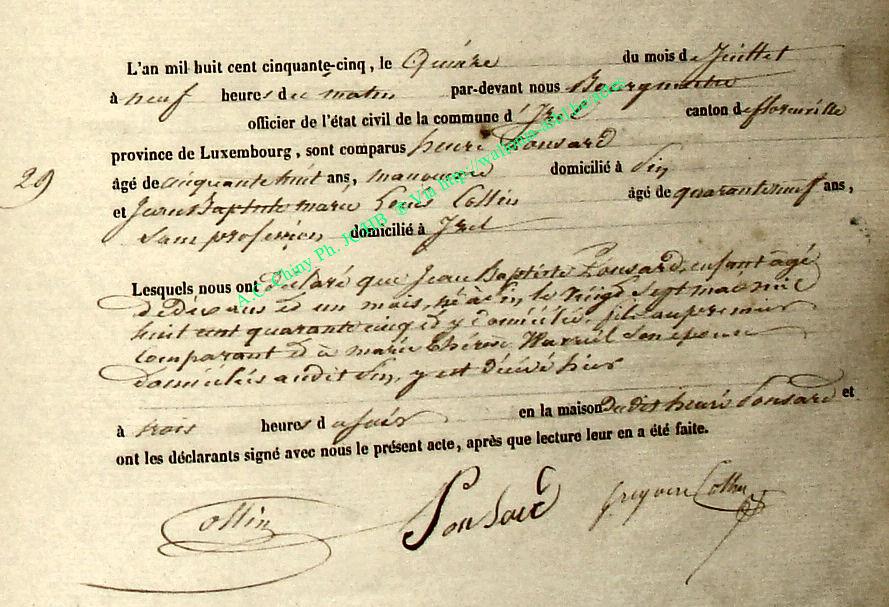 L'an mil huit cent cinquante-cinq, le Quinze du mois de Juillet
à neuf heures du matin par-devant nous Bourgmestre
officier de l'état civil de la commune d'Izel canton de florenville
province de Luxembourg, sont comparus henri Ponsard
29
âgé de cinquante huit ans, manouvrier domicilié à Pin
et Jean Baptiste marie Louis Collin âgé de quarante neuf ans,
sans profession domicilié à Izel
Lesquels nous ont déclaré que Jean Baptiste Ponsard, enfant âgé
de Dix ans et un mois, né à Pin, le vingt Sept mai mil
huit cent quarante cinq et y domicilié, fils au premier
comparant et à marie Thérèse son épouse
domiciliés audit Pin, y est décédé hier
à trois heures du soir en la maison dudit henri Ponsard et
ont les déclarants signé avec nous le présent acte, après que lecture leur en a été faite.
Collin Ponsard Collin
A.C. Chiny Ph. JCHIB ® Via http://wallonia-asbl.be/actes